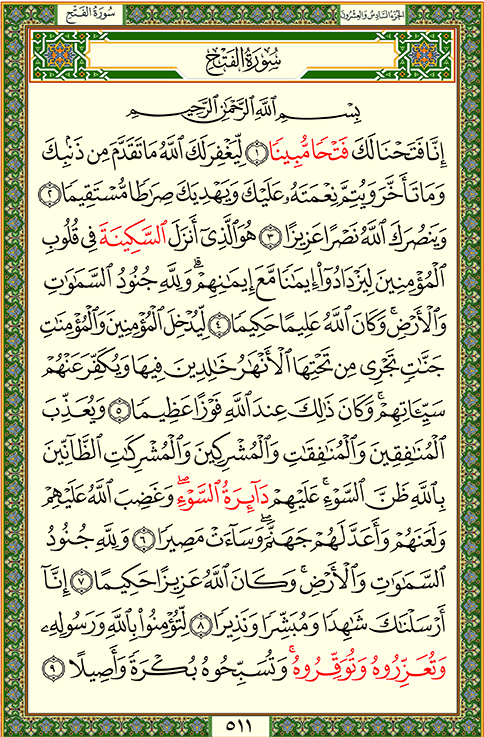 سُورَةُ الفَتۡحِ
الجُزۡءُ السَّادِسُ وَالعِشۡرُونَ
سُورَةُ الفَتۡحِ
بِسۡمِ ٱللَّهِ ٱلرَّحۡمَٰنِ ٱلرَّحِيمِ
إِنَّا فَتَحۡنَا لَكَ فَتۡحٗا مُّبِينٗا ١ لِّيَغۡفِرَ لَكَ ٱللَّهُ مَا تَقَدَّمَ مِن ذَنۢبِكَ
وَمَا تَأَخَّرَ وَيُتِمَّ نِعۡمَتَهُۥ عَلَيۡكَ وَيَهۡدِيَكَ صِرَٰطٗا مُّسۡتَقِيمٗا ٢
وَيَنصُرَكَ ٱللَّهُ نَصۡرًا عَزِيزًا ٣ هُوَ ٱلَّذِيٓ أَنزَلَ ٱلسَّكِينَةَ فِي قُلُوبِ
ٱلۡمُؤۡمِنِينَ لِيَزۡدَادُوٓاْ إِيمَٰنٗا مَّعَ إِيمَٰنِهِمۡۗ وَلِلَّهِ جُنُودُ ٱلسَّمَٰوَٰتِ
وَٱلۡأَرۡضِۚ وَكَانَ ٱللَّهُ عَلِيمًا حَكِيمٗا ٤ لِّيُدۡخِلَ ٱلۡمُؤۡمِنِينَ وَٱلۡمُؤۡمِنَٰتِ
جَنَّٰتٖ تَجۡرِي مِن تَحۡتِهَا ٱلۡأَنۡهَٰرُ خَٰلِدِينَ فِيهَا وَيُكَفِّرَ عَنۡهُمۡ
سَيِّـَٔاتِهِمۡۚ وَكَانَ ذَٰلِكَ عِندَ ٱللَّهِ فَوۡزًا عَظِيمٗا ٥ وَيُعَذِّبَ
ٱلۡمُنَٰفِقِينَ وَٱلۡمُنَٰفِقَٰتِ وَٱلۡمُشۡرِكِينَ وَٱلۡمُشۡرِكَٰتِ ٱلظَّآنِّينَ
بِٱللَّهِ ظَنَّ ٱلسَّوۡءِۚ عَلَيۡهِمۡ دَآئِرَةُ ٱلسَّوۡءِۖ وَغَضِبَ ٱللَّهُ عَلَيۡهِمۡ
وَلَعَنَهُمۡ وَأَعَدَّ لَهُمۡ جَهَنَّمَۖ وَسَآءَتۡ مَصِيرٗا ٦ وَلِلَّهِ جُنُودُ
ٱلسَّمَٰوَٰتِ وَٱلۡأَرۡضِۚ وَكَانَ ٱللَّهُ عَزِيزًا حَكِيمًا ٧ إِنَّآ
أَرۡسَلۡنَٰكَ شَٰهِدٗا وَمُبَشِّرٗا وَنَذِيرٗا ٨ لِّتُؤۡمِنُواْ بِٱللَّهِ وَرَسُولِهِۦ
وَتُعَزِّرُوهُ وَتُوَقِّرُوهُۚ وَتُسَبِّحُوهُ بُكۡرَةٗ وَأَصِيلًا ٩
٥١١